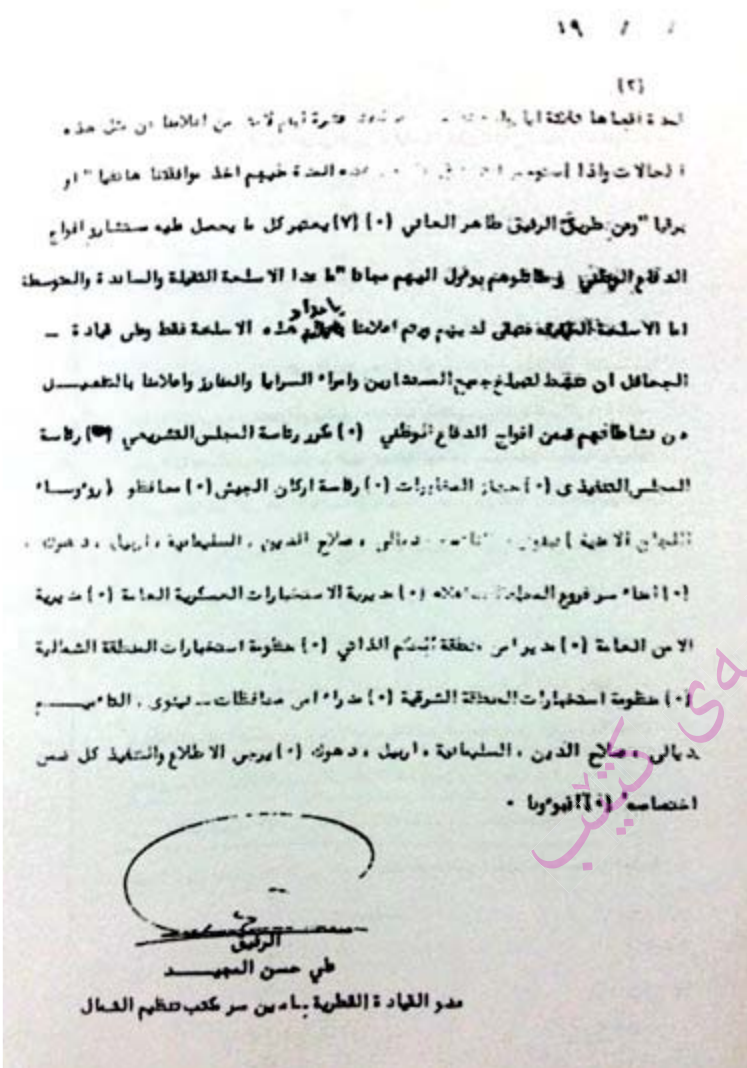 / / ١٩
(٢)
لمدة اقصاها ثلاثة ايام فترة من اعلامنا عن مثل هذه
الحالات واذا المدة عليهم اخذ موافقتنا هاتفيا" او
برقيا "وعن طريق الرفيق طاهر العاني (٠) (٧) يعتبر كل ما يحصل عليه مستشارو افواج
الدفاع الوطني ومقاتلوهم يوءول اليهم مجانا "ما عدا الاسلحة الثقيلة والساندة والمتوسطة
اما الاسلحة الخفيفة فتبقى لديهم ويتم اعلامنا باعداد هذه الاسلحة فقط وعلى قيادة ــ
الجحافل ان تنشط لتبليغ جميع المستشارين وامراء السرايا والمفارز واعلامنا بالتفصيـــل
عن نشاطاتهم ضمن افواج الدفاع الوطني (٠) مكرر رئاسة المجلس التشريعي (٠) رئاسة
المجلس التنفيذى (٠) جهاز المخابرات (٠) رئاسة اركان الجيش (٠) محافظو (روءوســاء
اللجان الامنية) نينوى ، ديالى ، صلاح الدين ، السليمانية ، اربيل ، دهوك ،
(٠) امناء سر فروع المحافظات اعلاه (٠) مديرية الاستخبارات العسكرية العامة (٠) مديرية
الامن العامة (٠) مدير امن منطقة الحكم الذاتي (٠) منظومة استخبارات المنطقة الشمالية
(٠) منظومة استخبارات المنطقة الشرقية (٠) مدراء امن محافظات ــ نينوى ، التاءميـــم
ديالى ، صلاح الدين ، السليمانية ، اربيل ، دهوك (٠) يرجى الاطلاع والتنفيذ كل ضمن
اختصاصه (٠) انبوءونا ٠
الرفيق
علي حسن المجيـــد
عضو القيادة القطرية ـ امين سر مكتب تنظيم الشمال
ەی کتێب